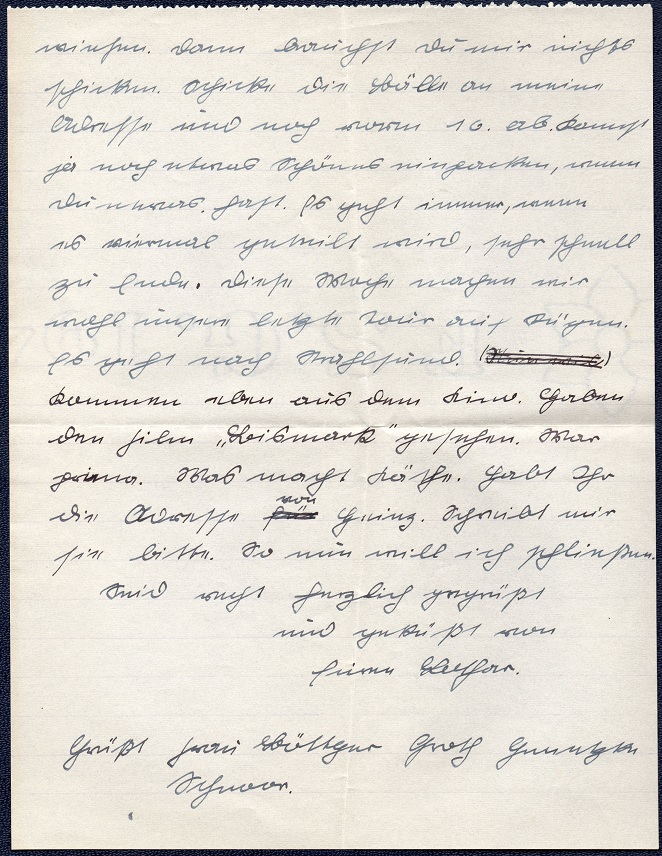 wiesen. Dann brauchst Du mir nichts
schicken. Schicke die Bälle an meine
Adresse und noch vorm 10. ab. Kannst
ja noch etwas Schönes einpacken, wenn
Du etwas hast. Es geht immer, wenn
es viermal geteilt wird, sehr schnell
zu Ende. Diese Woche machen wir
wohl unsere letzte Tour auf Rügen.
Es geht nach Stralsund.
Kommen eben aus dem Kino. Haben
den Film „Bismark" gesehen. War
prima. Was macht Käthe. Habt Ihr
die Adresse von Heinz. Schreibt mir
sie bitte. So nun will ich schließen.
Seid recht herzlich gegrüßt
und geküßt von
Euren Lothar.
Grüßt Frau Böttger Groth
Schnoor.